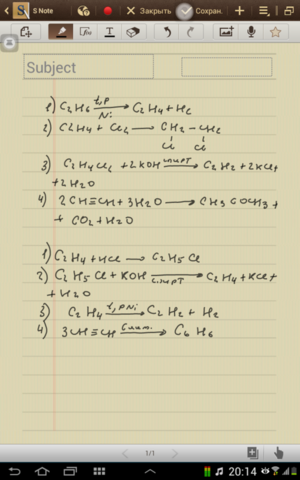 S Note
Закрыть
Сохран.
Subject
1) C2H6 t,P Ni → C2H4 + H2
2) C2H4 + Cl2 → CH2 – CH2
Cl Cl
3) C2H4Cl2 + 2KOH спирт → C2H2 + 2KCl +
+ 2H2O
4) 2CH≡CH + 3H2O → CH3COCH3 +
+ CO2 + H2O
1) C2H4 + HCl → C2H5Cl
2) C2H5Cl + KOH спирт → C2H4 + KCl +
+ H2O
3) C2H4 t,P Ni → C2H2 + H2
4) 3CH≡CH → C6H6
1/1
20:14